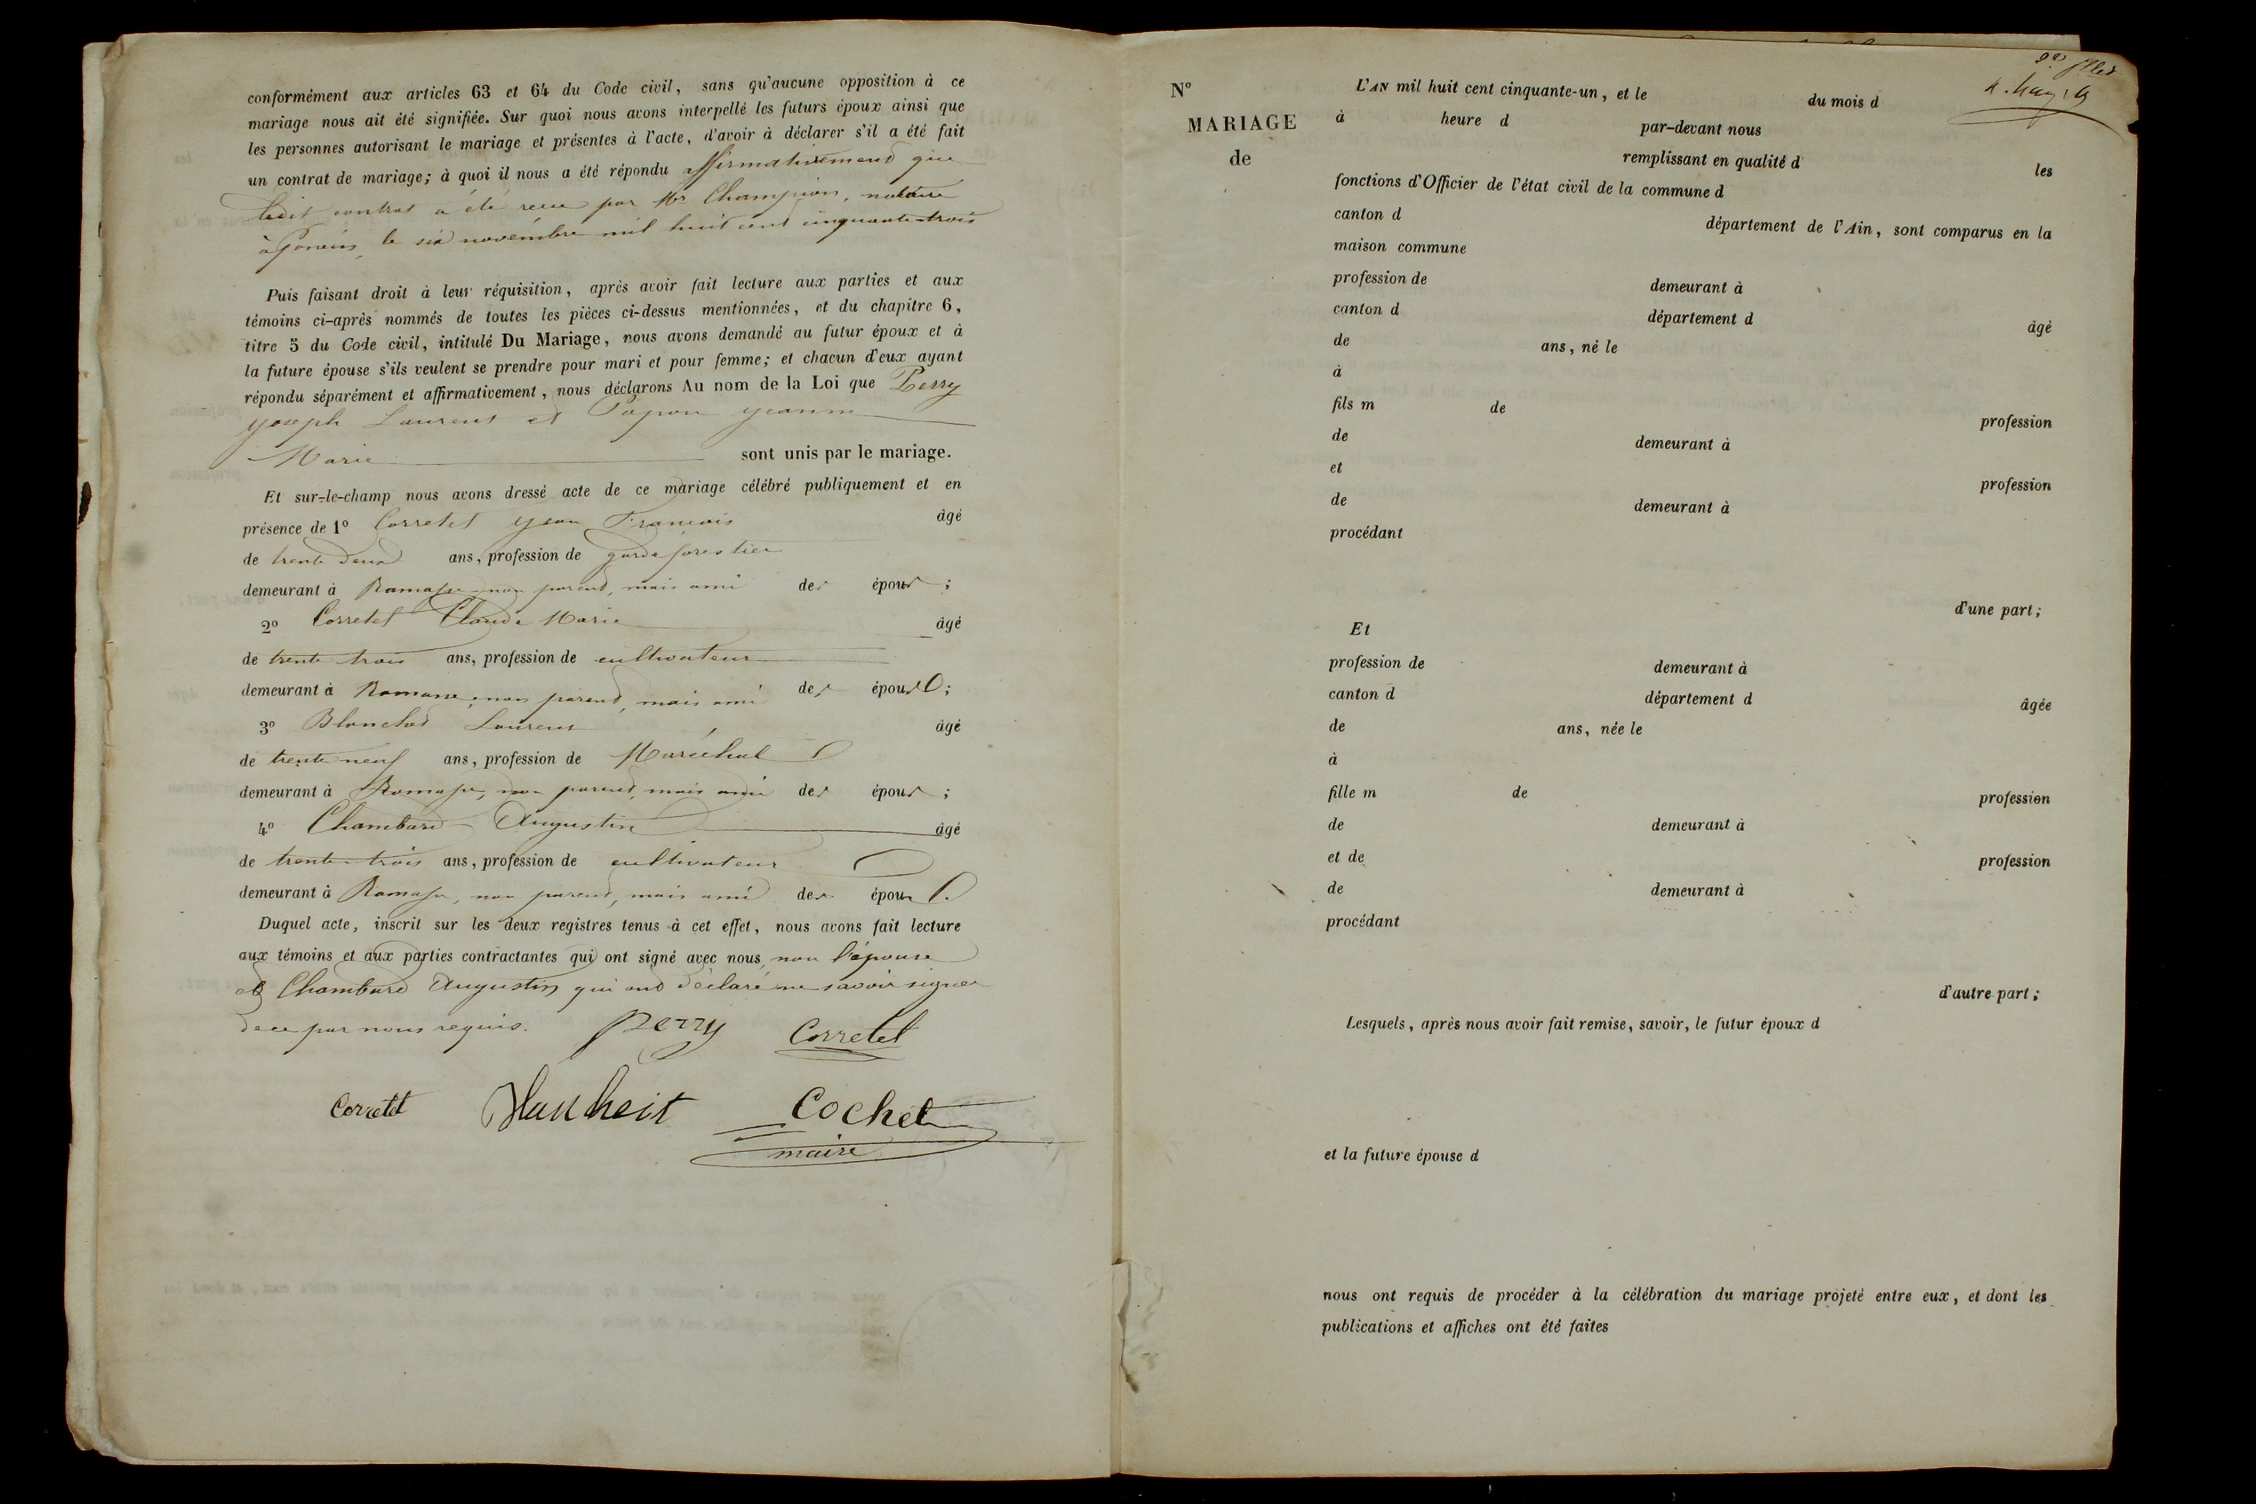 conformément aux articles 63 et 64 du Code civil, sans qu'aucune opposition à ce
mariage nous ait été signifiée. Sur quoi nous avons interpellé les futurs époux ainsi que
les personnes autorisant le mariage et présentes à l'acte, d'avoir à déclarer s'il a été fait
un contrat de mariage; à quoi il nous a été répondu affirmativement que
ledit contrat a été recu par Mr Champion, notaire
à le six novembre mil huit cent cinquante-trois
Puis faisant droit à leur réquisition, après avoir fait lecture aux parties et aux
témoins ci-après nommés de toutes les pièces ci-dessus mentionnées, et du chapitre 6,
titre 5 du Code civil, intitulé Du Mariage, nous avons demandé au futur époux et à
la future épouse s'ils veulent se prendre pour mari et pour femme; et chacun d'eux ayant
répondu séparément et affirmativement, nous déclarons Au nom de la Loi que Perry
joseph Laurent et Papon jeanne
Marie sont unis par le mariage.
Et sur-le-champ nous avons dressé acte de ce mariage célébré publiquement et en
présence de 1° Corretet jean François âgé
de trente deux ans, profession de garde forestier
demeurant à Ramasse non parent, mais ami des époux;
2° Corretet Claude Marie âgé
de trente trois ans, profession de cultivateur
demeurant à Ramasse, non parent, mais ami des époux;
3° Laurent âgé
de trente neuf ans, profession de Maréchal
demeurant à Ramasse, non parent, mais ami des époux;
4° Chambard Augustin âgé
de trente-trois ans, profession de cultivateur
demeurant à Ramasse, non parent, mais ami des époux
Duquel acte, inscrit sur les deux registres tenus à cet effet, nous avons fait lecture
aux témoins et aux parties contractantes qui ont signé avec nous, non l'épouse
et Chambard Augustin qui ont déclaré ne savoir signer
de ce par nous requis. Perry Corretet
Corretet Cochet
maire
N°
MARIAGE
de
L'AN mil huit cent cinquante-un, et le du mois d
à heure d par-devant nous
remplissant en qualité d les
fonctions d'Officier de l'état civil de la commune d
canton d département de l'Ain, sont comparus en la
maison commune
profession de demeurant à
canton d département d âgé
de ans, né le
à
fils m de profession
de demeurant à
et profession
de demeurant à
procédant
d'une part;
Et
profession de demeurant à
canton d département d âgée
de ans, née le
à
fille m de profession
de demeurant à
et de profession
de demeurant à
procédant
d'autre part;
Lesquels, après nous avoir fait remise, savoir, le futur époux d
et la future épouse d
nous ont requis de procéder à la célébration du mariage projeté entre eux, et dont les
publications et affiches ont été faites